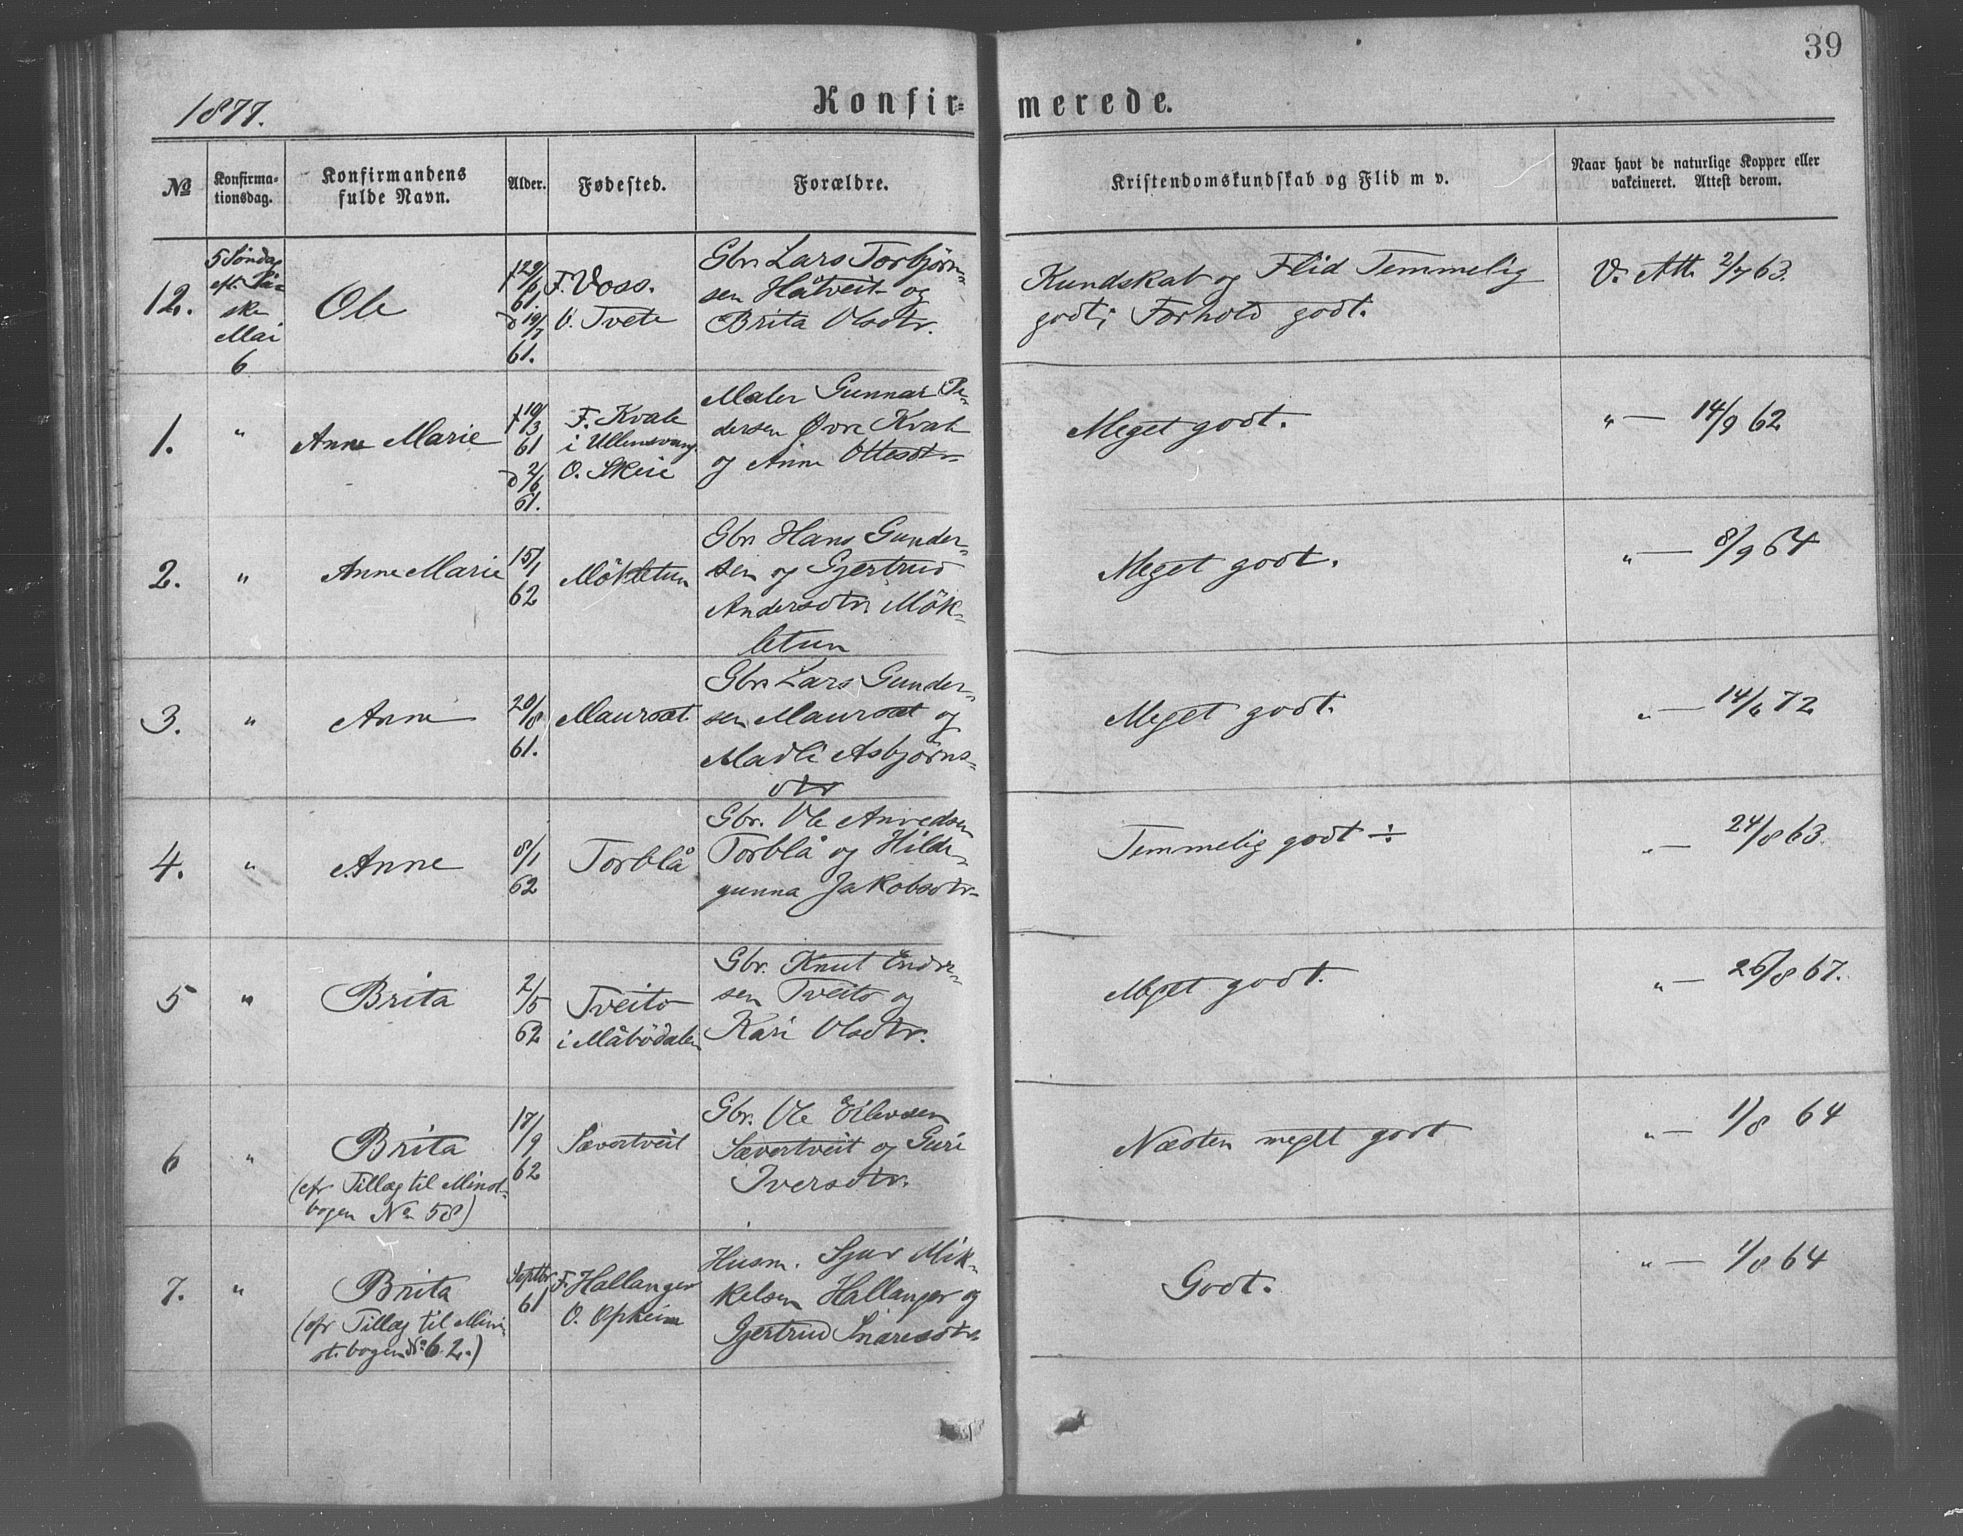 39
1877.
Konfir= merede.
№
Konfirma-
tionsdag.
Konfirmandens
fulde Navn.
Alder.
Fødested.
Forældre.
Kristendomskundskab og Flid m v.
Naar havt de naturlige Kopper eller
vakcineret. Attest derom.
12.
5 Søndag
eft. Paa-
ske
Mai
6
Ole
f 29/6
61.
d 19/7
61.
F. Voss.
O. Tvete
Gbr. Lars Torbjørn-
sen Håtveit og
Brita Olsdtr.
Kundskab og Flid Temmelig
godt; Forhold godt.
V. Att. 2/7 63.
1.
"
Anne Marie
f 19/3
61
d 2/6
61.
F. Kvale
i Ullensvang
O. Skeie
Maler Gunnar Pe-
dersen Øvre Kvale
og Anne Ottesdtr
Meget godt.
" — 14/9 62
2.
"
Anne Marie
15/1
62
Mökletun
Gbr. Hans Gunder-
sen og Gjertrud
Andersdtr. Mök-
letun
Meget godt.
" — 8/9 64
3.
"
Anne
20/8
61.
Maursæt
Gbr. Lars Gunder-
sen Maursæt og
Madli Asbjørns-
dtr
Meget godt.
" — 14/6 72
4.
"
Anne
8/1
62
Torblå
Gbr. Ole Anvedsen
Torblå og Hilde-
gunna Jakobsdtr
Temmelig godt ÷
" — 24/8 63.
5
"
Brita
2/5
62
Tveito
i Måbödalen
Gbr. Knut Endre-
sen Tveito og
Kari Olsdtr.
Meget godt.
" — 26/8 67.
6
"
Brita
(cfr Tillæg til Minst-
bogen No 58)
17/9
62
Sævertveit
Gbr. Ole Eilevsen
Sævertveit og Guri
Iversdtr.
Næsten meget godt
" — 1/8 64
7.
"
Brita
(cfr Tillæg til Mini-
st.bogen No 62.)
Septbr
61
F. Hallanger
O. Opheim
Husm. Sjur Mik-
kelsen Hallanger og
Gjertrud Snaresdtr
Godt.
" — 1/8 64